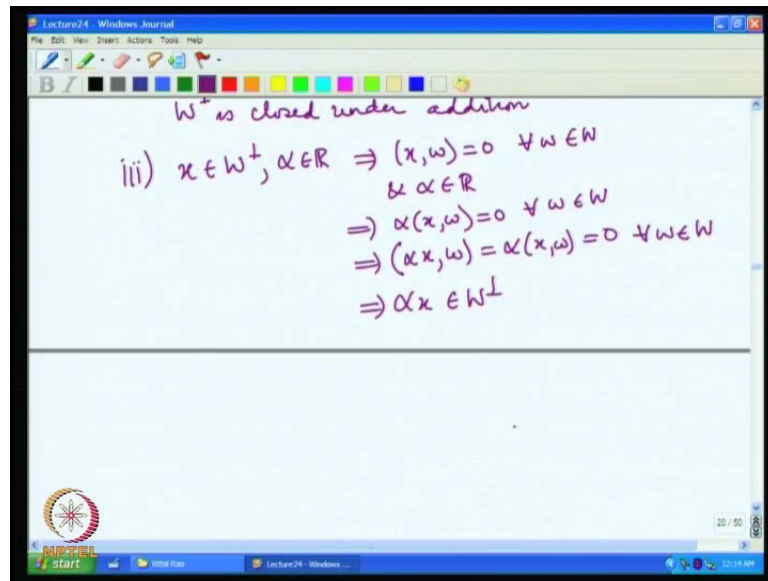 Lecture24 - Windows Journal
File Edit View Insert Actions Tools Help
B I
W⊥ is closed under addition
iii) x ∈ W⊥, α ∈ ℝ ⇒ (x, w) = 0 ∀ w ∈ W
& α ∈ ℝ
⇒ α(x, w) = 0 ∀ w ∈ W
⇒ (αx, w) = α(x, w) = 0 ∀ w ∈ W
⇒ αx ∈ W⊥
20 / 50
NPTEL
start Vittal Rao Lecture24 - Windows ... 12:14 AM